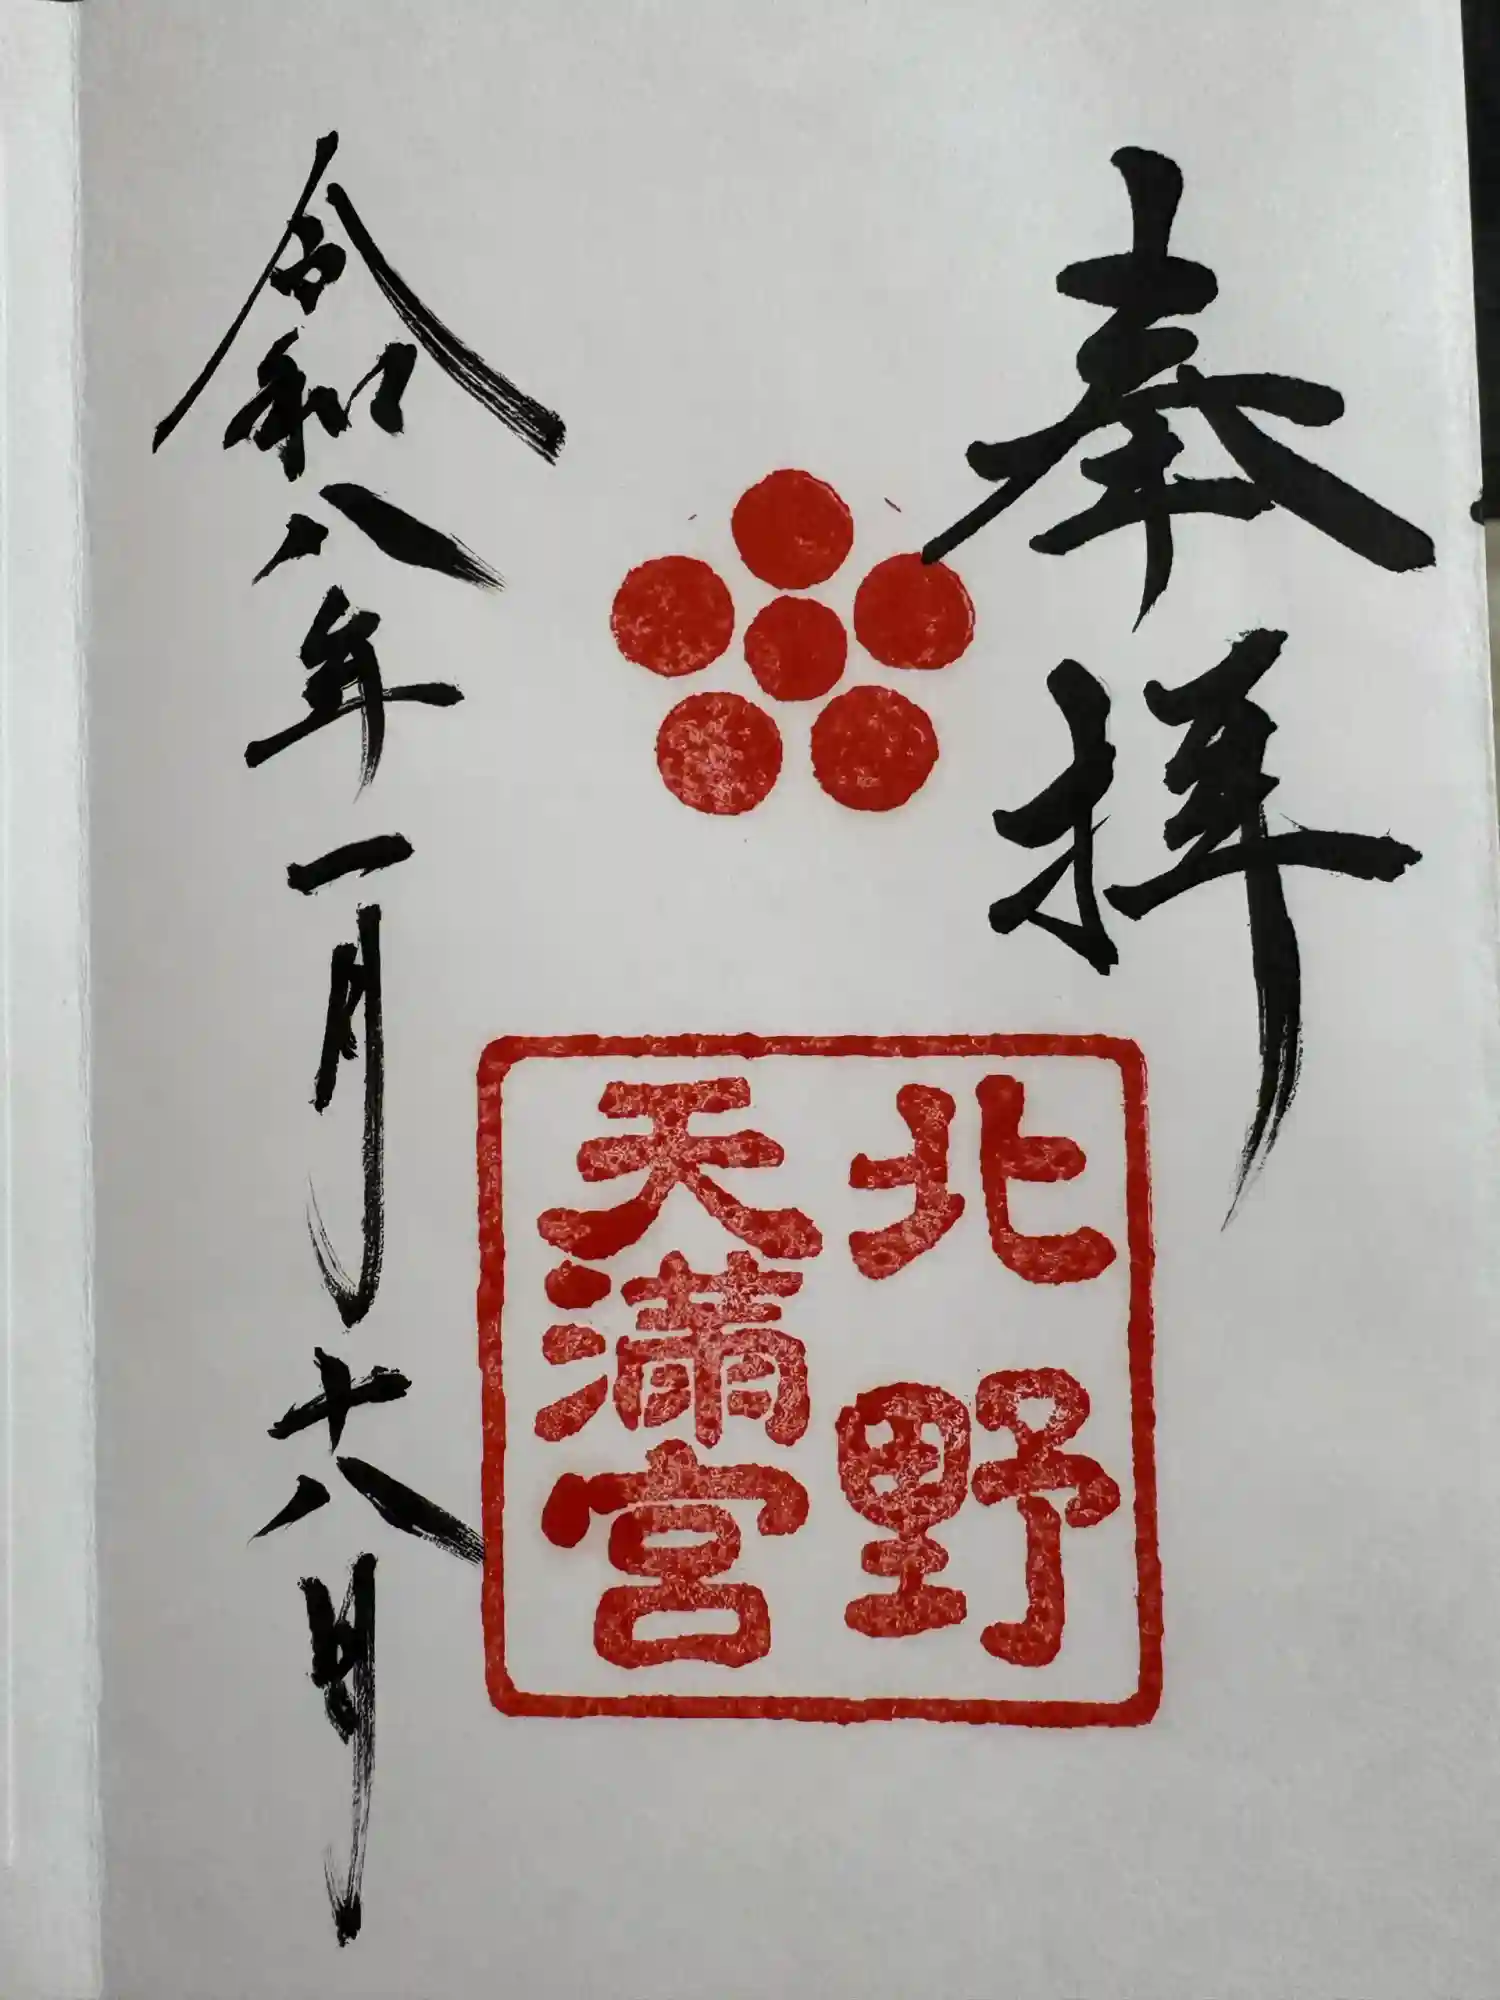 奉拝
北野
天満宮
令和八年一月十八日